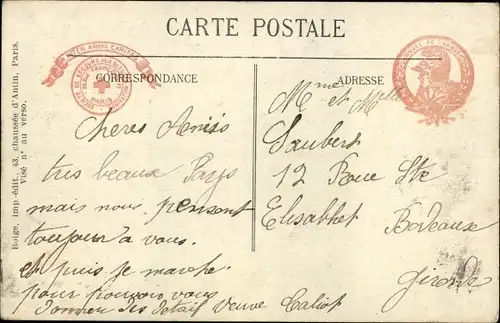 CARTE POSTALE
INTER ARMA CARITAS
PARIS
CORRESPONDANCE
ADRESSE
Bolge, imp.-édit., 43, chaussée d'Antin, Paris.
Visé n° au verso.
Cheres Amiss
tres beaux Pays
mais nous pensont
toujour a vous.
et puis je marche
pour pouvoir vous
donner des detail veuve Caliot
Mme et Melle
Saubert
12 Roue Ste
Elisabhet Bordeaux
Gironde